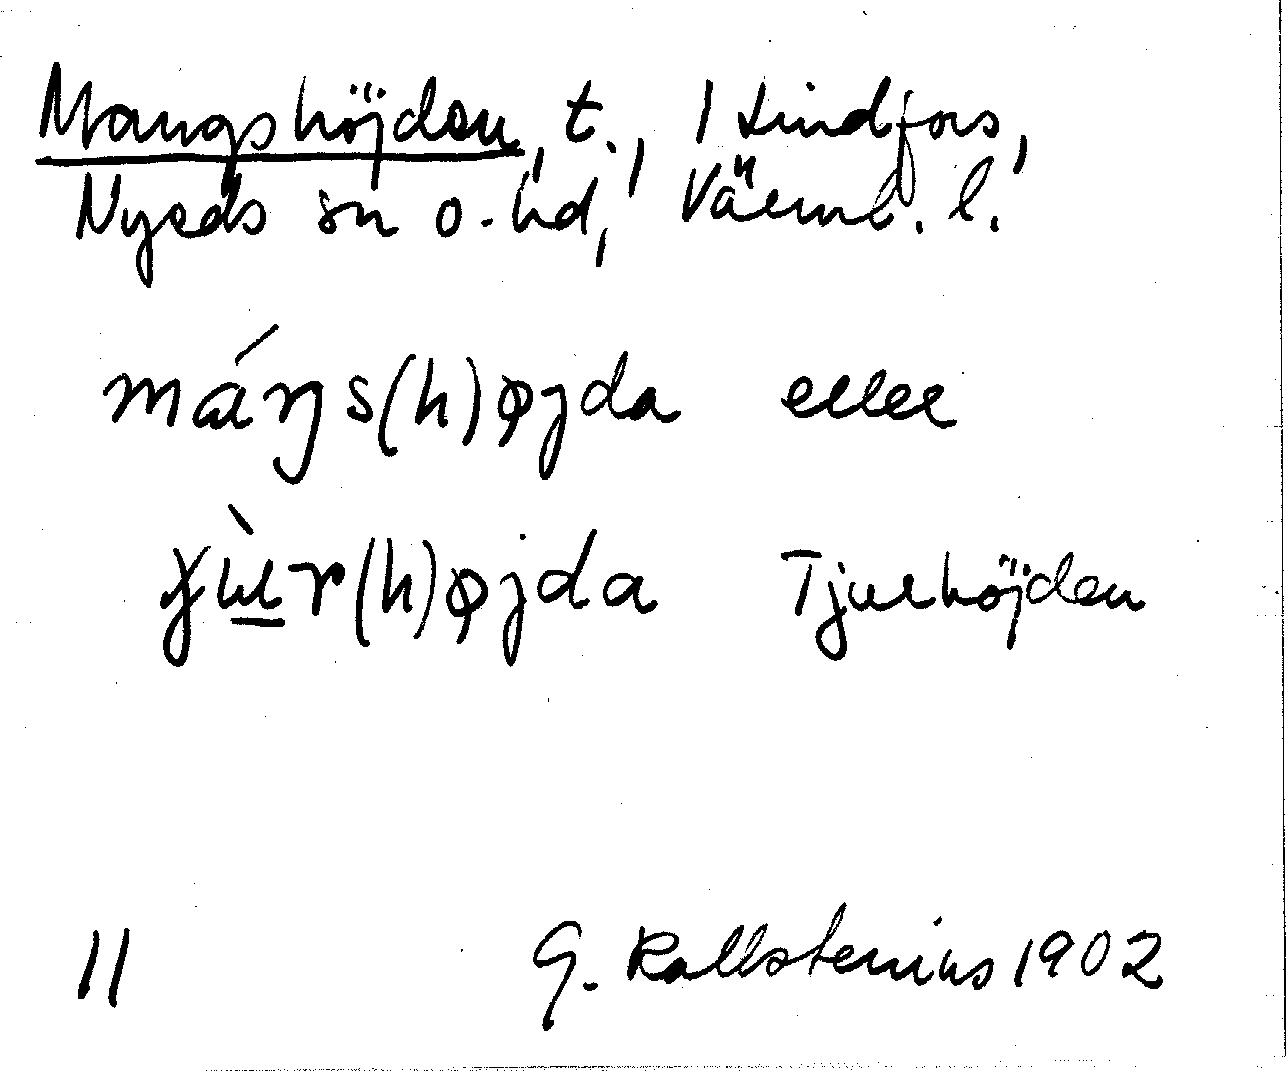 Mangshöjden, t., 1 Lindfors,
Nyeds sn o. hd, Värml. l.
máŋs(h)øjda eller
ɟɯ̀r(h)øjda Tjurhöjden
11 G. Kallstenius 1902